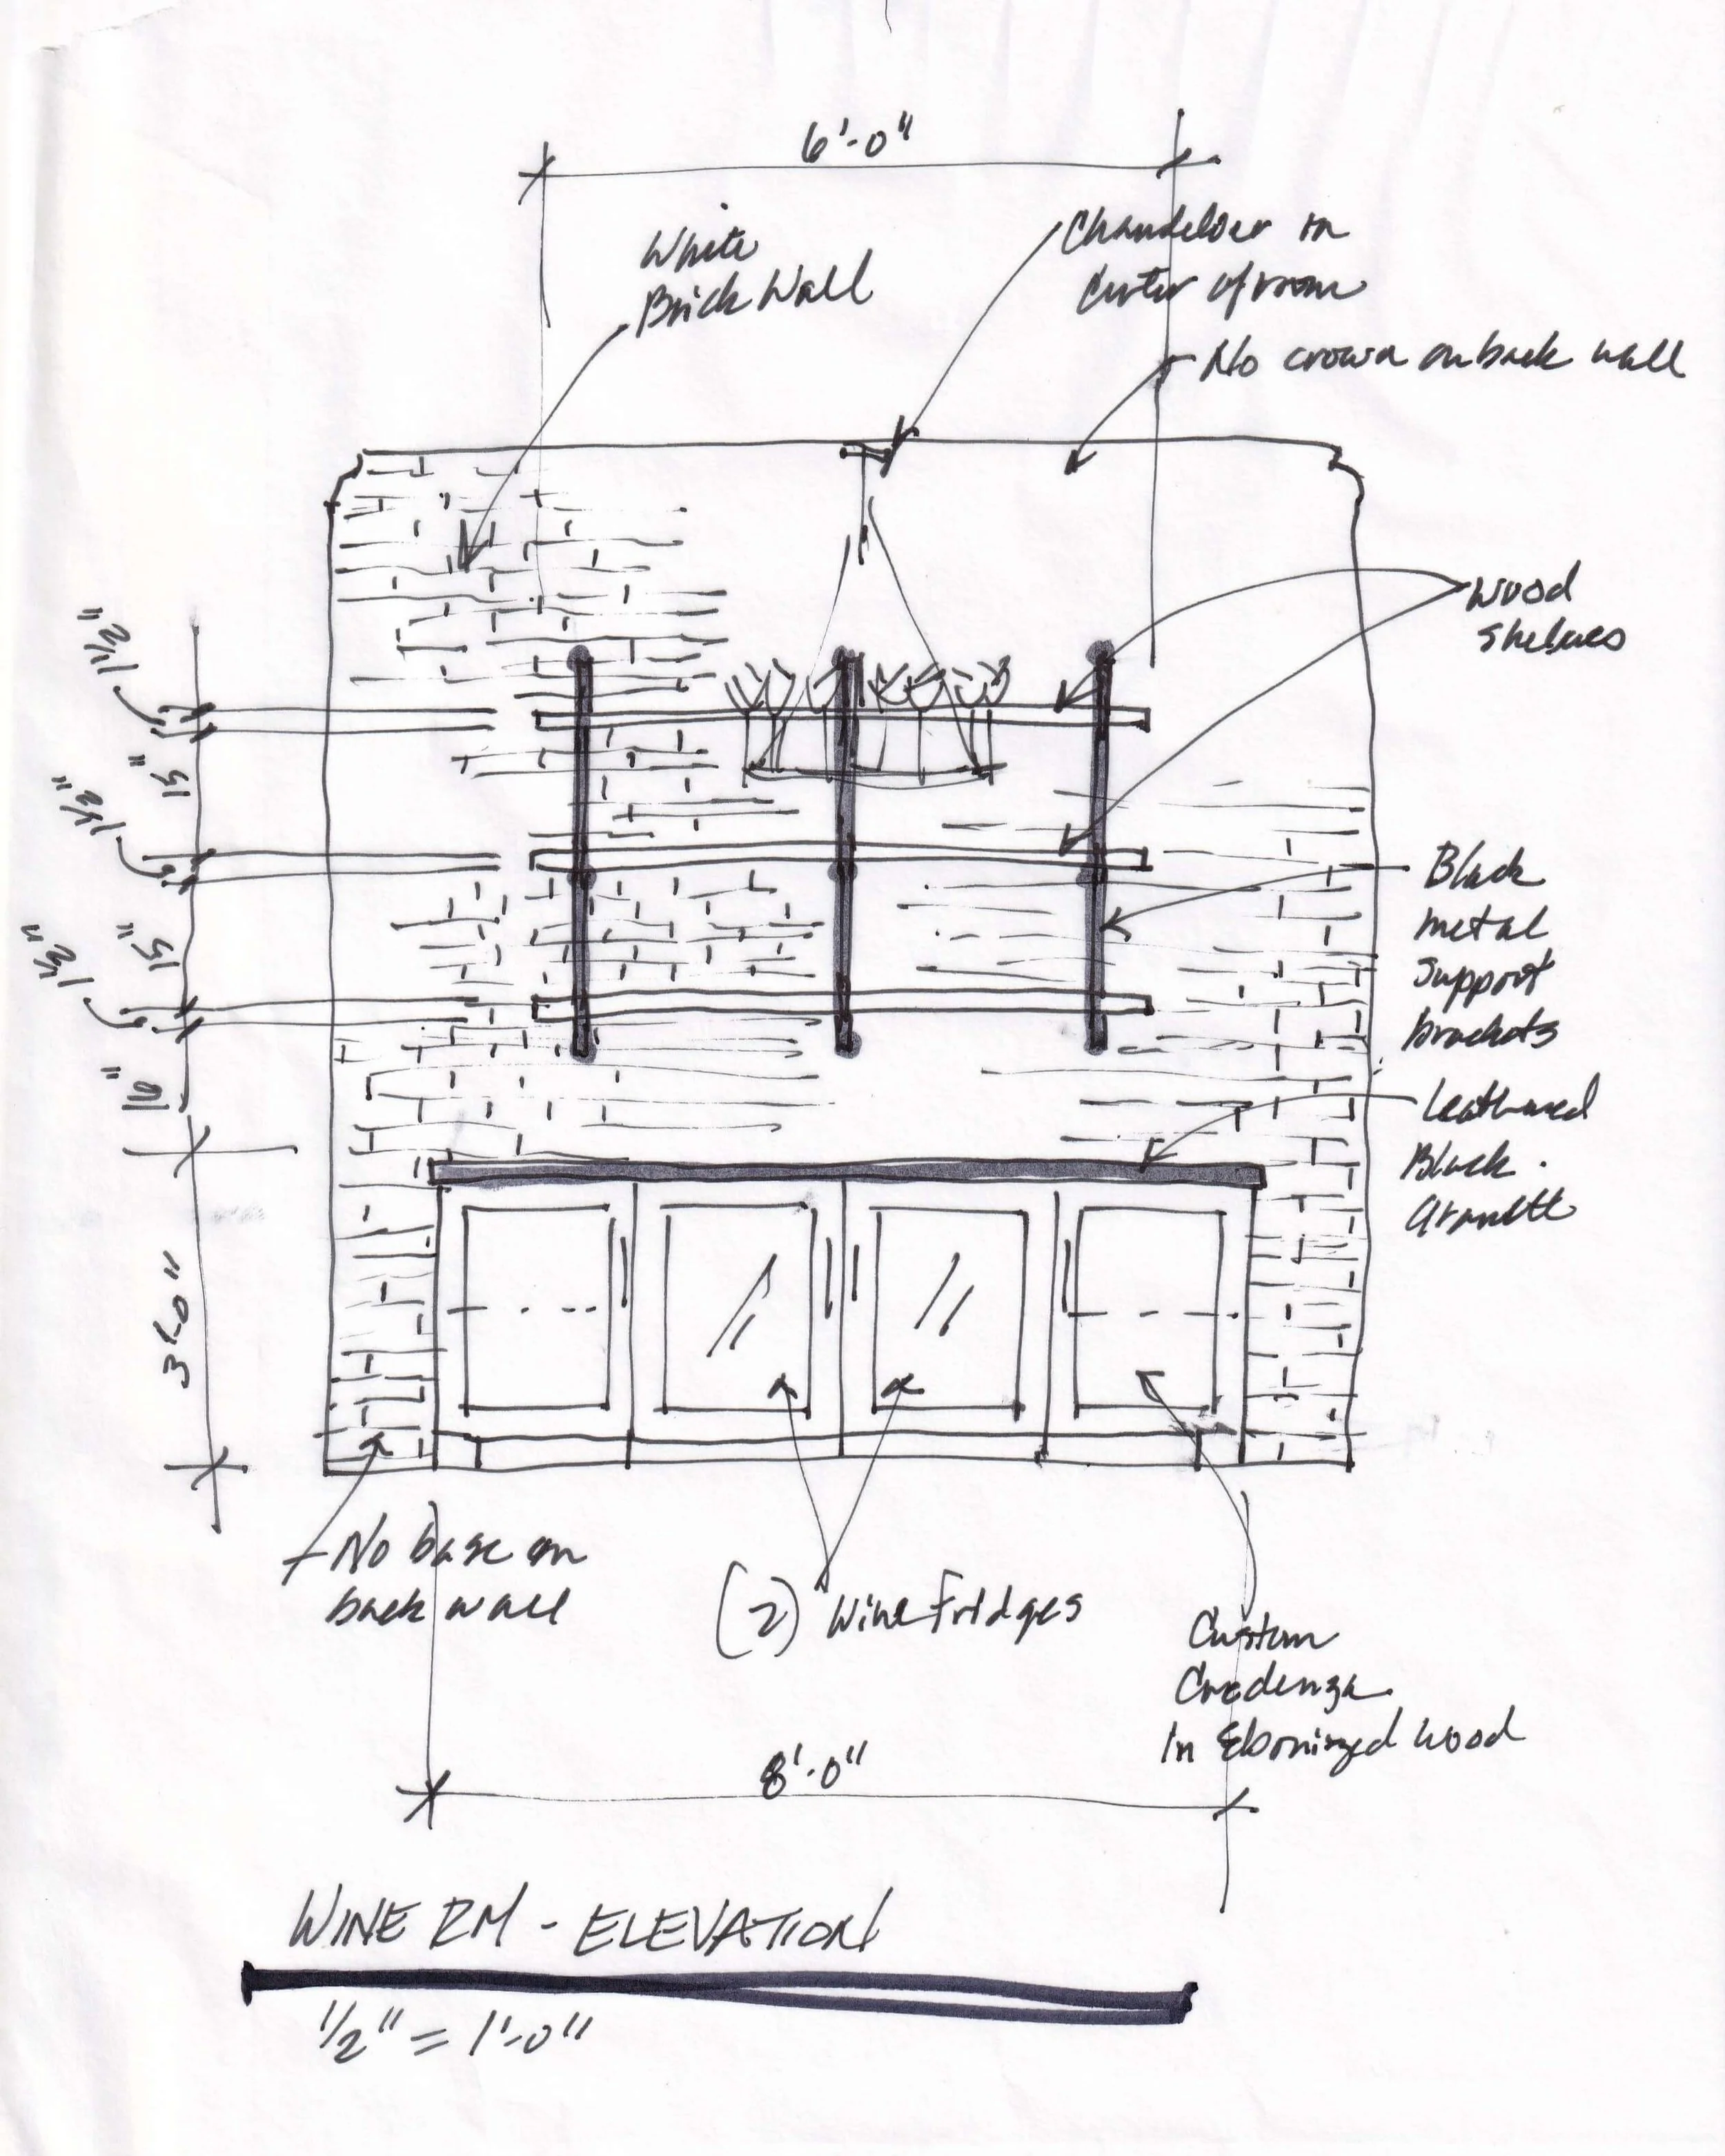 6'-0"
White
Brick Wall
Chandelier in
Center of room
No crown on back wall
Wood
Shelves
1 1/2"
15"
1 1/2"
15"
1 1/2"
Black
metal
support
brackets
Leathered
Black
Granite
3'-0"
No base on
back wall
(2) Wine Fridges
Custom
Credenza
in Ebonized Wood
8'-0"
WINE RM - ELEVATION
1/2" = 1'-0"